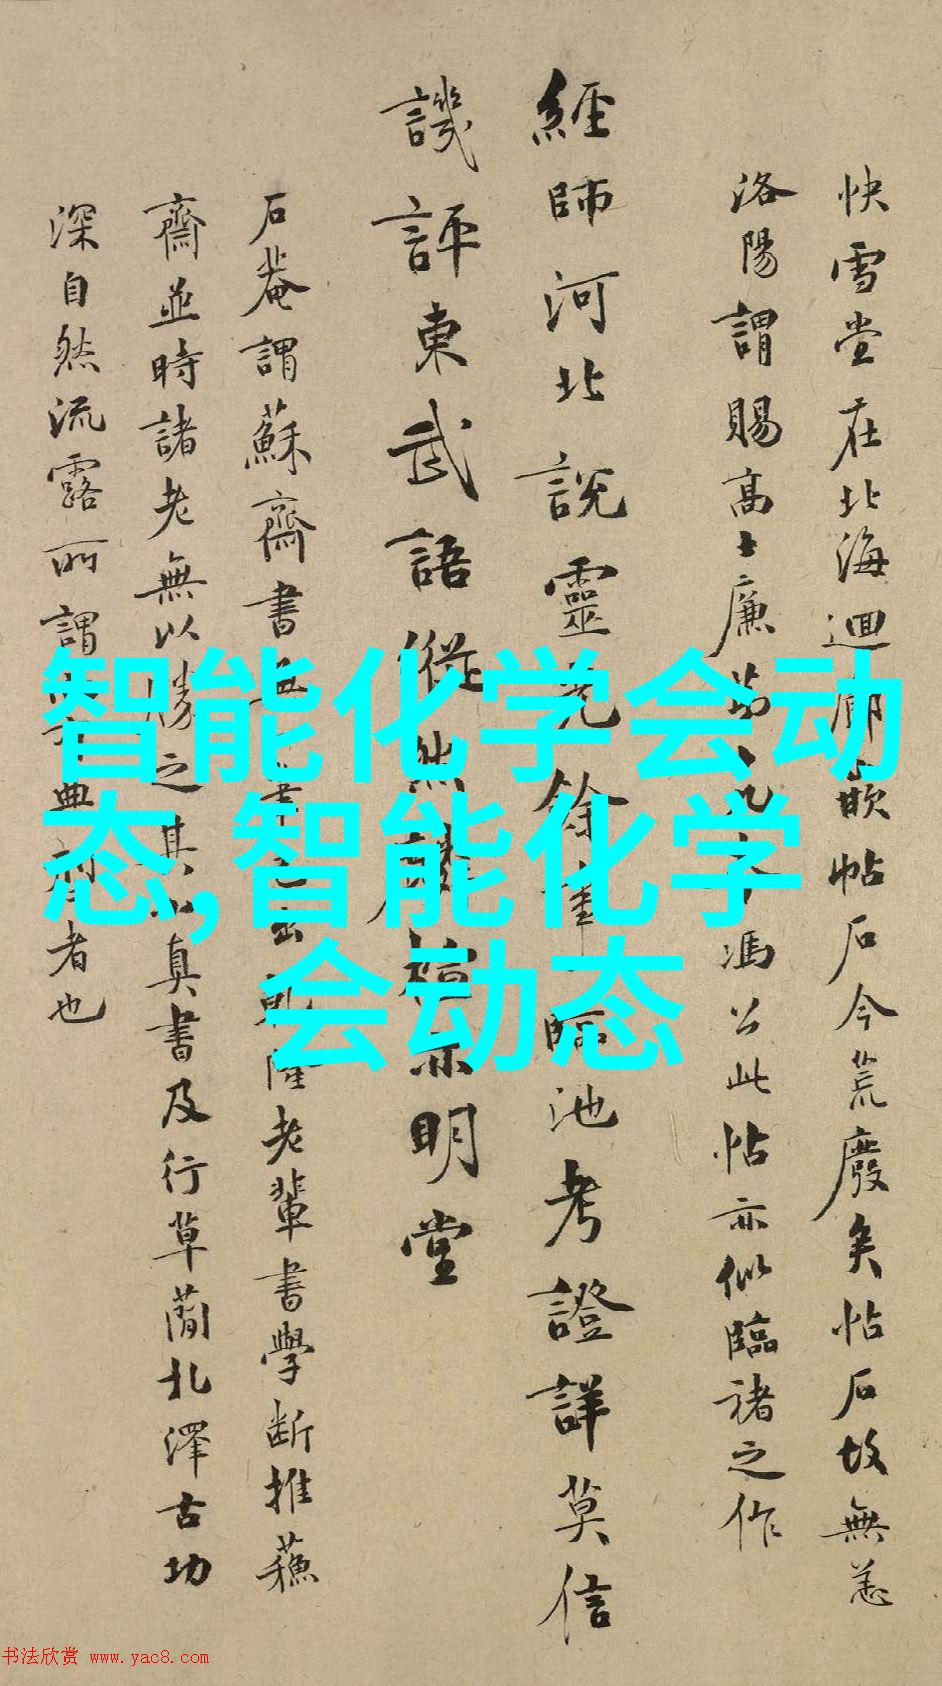 快雪堂在北海迴廊嵌帖石今荒廢矣帖石故無恙
洛陽謂賜高士廉馮公此帖亦似臨褚之作
經師河北說靈光餘事臨池考證詳莫信
譏評東武語縱然稿亦明堂
石菴謂蘇齋書無隆老輩書學斷推蘇
齋並時諸老無以勝之其小真書及行草簡札澤古功
深自然流露所謂典型者也
智能化学会动
态,智能化学
会动态
书法欣赏 www.yac8.com